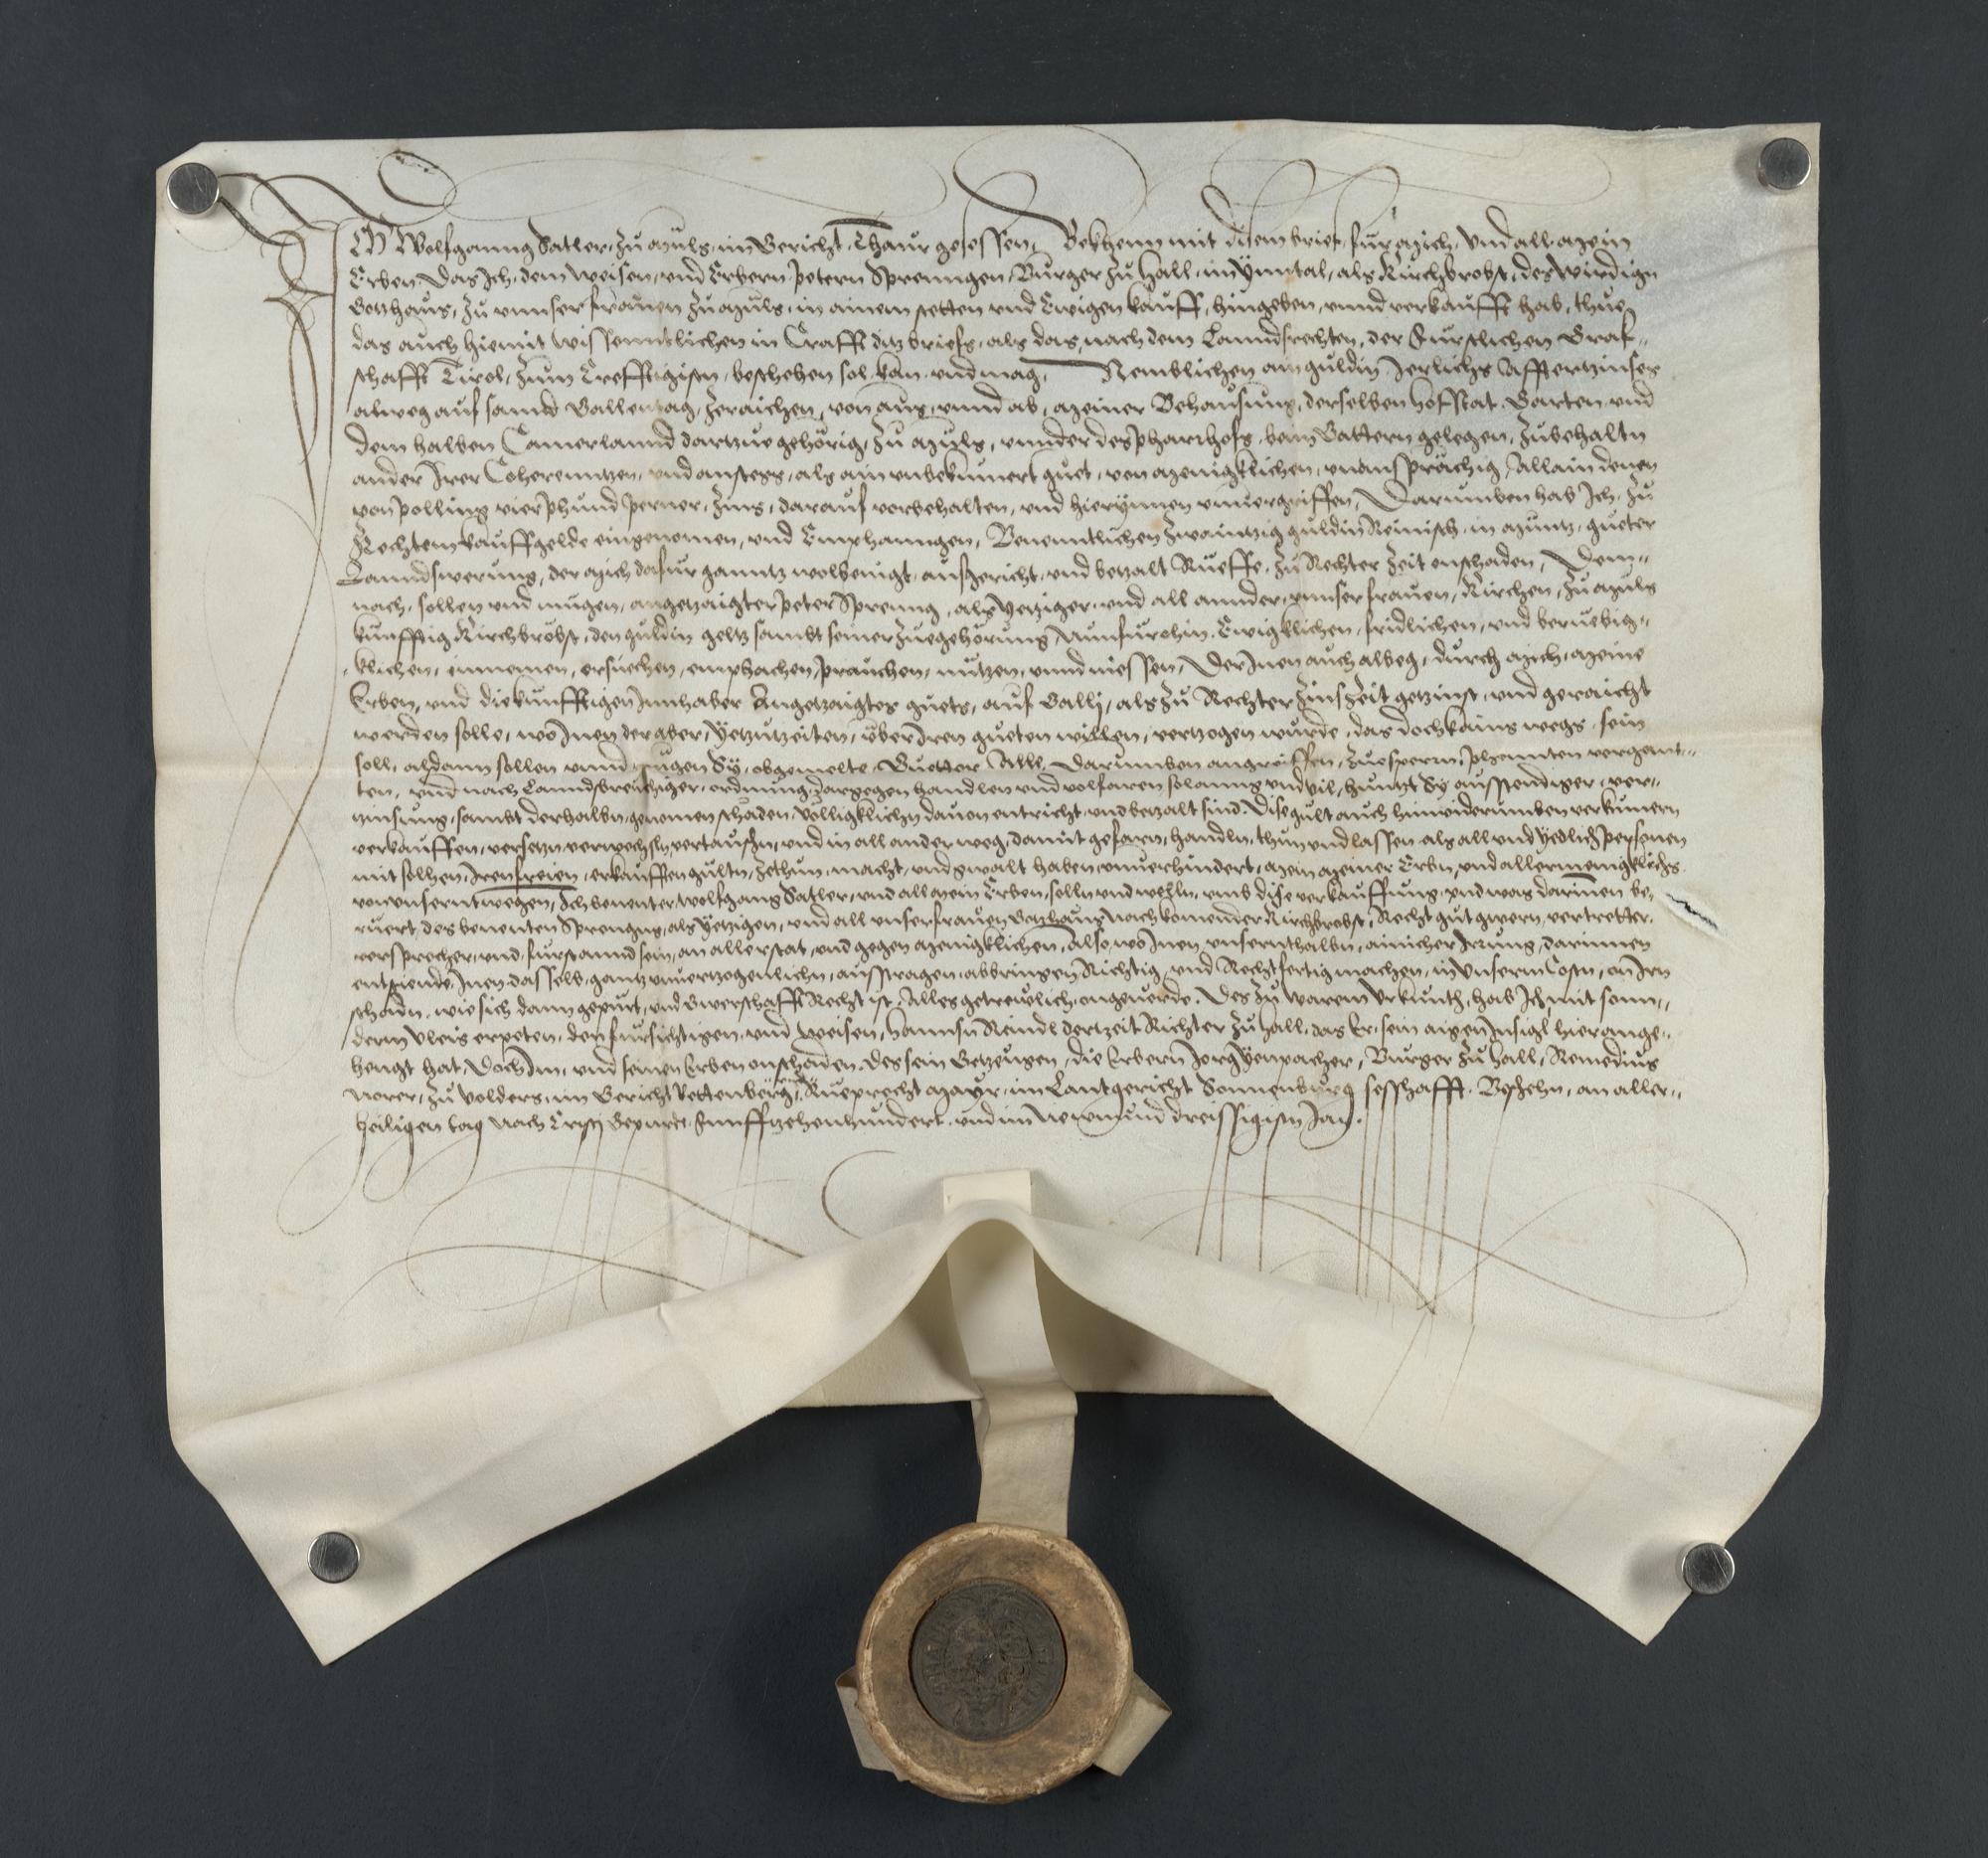 ICH Wolfganng Satler, zu Müls, im Gericht Thaur gesessen, Bekhenn mit disem brief, für mich, vnd all mein
Erben. Das Ich, dem Weisen, vnd Erbern Petern Sprenngen, Burger zu Hall, im Ynntal, als Kirchbrobst, des wirdign
Gotzhaus, zu vnnser frauen zu Müls, in ainem stetten vnd Ewigen kauff, hingeben, vnnd verkaufft hab, thue
das auch hiemit wissenntlichen in Crafft ditz briefs, als das, nach dem Lanndsrechten, der Furstlichen Graf-
schafft Tirol, zum Crefftigistn, beschehen sol, kan, vnd mag, Nemblichen ain guldin Jerlichs Afftertzinses
alweg auf sannd Gallentag, zeraichen, von, aus, vnnd ab, meiner Behausung, derselben hofstat, Garten, vnd
dem halben Camerlannd dartzue gehörig, zu Müls, vnnder des Pharrhofs, beim Gattern gelegen, zubehaltn
ander Irer Coherenntzen, vnd anstess, als ain vnbekumert guet, von menigklichen, vnansprächig, Allain denen
von Polling vier phund Perner, zins, darauf vorbehalten, vnd hierynnen vnuergriffen, Darumben hab Ich, zu
Rechtem kauffgelde eingenomen, vnd Emphanngen, Benenntlichen zwaintzig guldin Reinisch, in Müntz, gueter
Lanndswerung, der mich dafur ganntz wolbenügt, ausgericht, vnd betzalt Rueffe, zu Rechter zeit onschaden, Dem-
nach, sollen vnd mügen, angetzaigter Peter Sprenng, als yetziger, vnd all annder, vnnser frauen, Kirchen, zu Müls
kunfftig Kirchbröbst, den guldin geltz sambt seiner zuegehörung Nunfurohin, Ewigklichen, fridlichen, vnd beruebig-
klichen, innemen, ersuechen, emphachen, prauchen, nutzen, vnnd niessen, Der Inen auch alweg, durch mich, meine
Erben, vnd die kunfftigen Innhaber Angetzaigtes guets, auf Galli, als zu Rechter Zinszeit getzinst, vnd geraicht
werden solle, wo Inen der aber, yetzutzeiten, über Iren gueten willen, vertzogen wurde, das doch kains wegs, sein
soll, alsdann sollen vnnd mügen Sy, obgemelte Guetter Alle, Darumben angreiffen, zuesperrn, Phenntten vergannt-
ten, vnnd nach Lanndsbreuchiger, ordnung, dargegen handlen vnd volfaren solanng vnd vil, huntzt Sy ausstendiger, ver-
tzinsung, sambt derhalbn, genomen schaden, völligklichn dauon entricht vnd betzalt sind. Dise gült auch hinwiderumben verkumern
verkauffen, versetzn verwechsln, vertauschn, vnd in all ander weg, damit gefarn, handln, thun vnd lassen als all vnd yedlich personen
mit solhen, Iren freien, erkaufften gültn, zethun, macht, vnd gwalt haben vnuerhindert, mein meiner Erbn, vnd allermenigklichs
von vnsern twegen, Ich benenter Wolfgang Satler, vnd all mein Erben, solln vnd welln, vmb dise verkauffung, vnd was darinnen be-
ruert, des benenten Sprengns, als yetzigen, vnd all vnser frauen Gotzhaus, Nachkomender Kirchbrobst, Recht gut gwern, vertretter,
versprecher, vnd furstannd sein, an aller stat, vnd gegen menigklichen, Also, wo Inen, vnsernthalbn, ainicher Irrung, darinnen
entstiende, Inen, dasselb, gantz vnuertzogenlichn, ausstragen, abbringen Richtig, vnd Rechtfertig machen, in vnserm Costn, on Irn
schadn, wie sich dann gepurt, vnd Gwerschafft Recht ist, Alles getrewlich, ongeuerde. Des zu warem Vrkunth, hab Ich, mit sonn-
derm vleis erpeten, den fursichtigen, vnd Weisen, Hannsn Reindl dertzeit Richter zu Hall, das Er, sein aigen Insigl hierange-
hengt hat, Doch Im, vnd seinen Erben onschaden. Des sein Getzeugen, die Erbern Jorg Yenpacher, Burger zu Hall, Remedius
Norer, zu Volders, im Gericht Rettenberg, Rueprecht Mayr, im Lantgericht Sonnenburg sesshafft. Beschehn, an aller-
heiligen tag Nach Cristi Gepurde, Funfftzehenhundert, vnd im Newnund dreissigistn Jar.